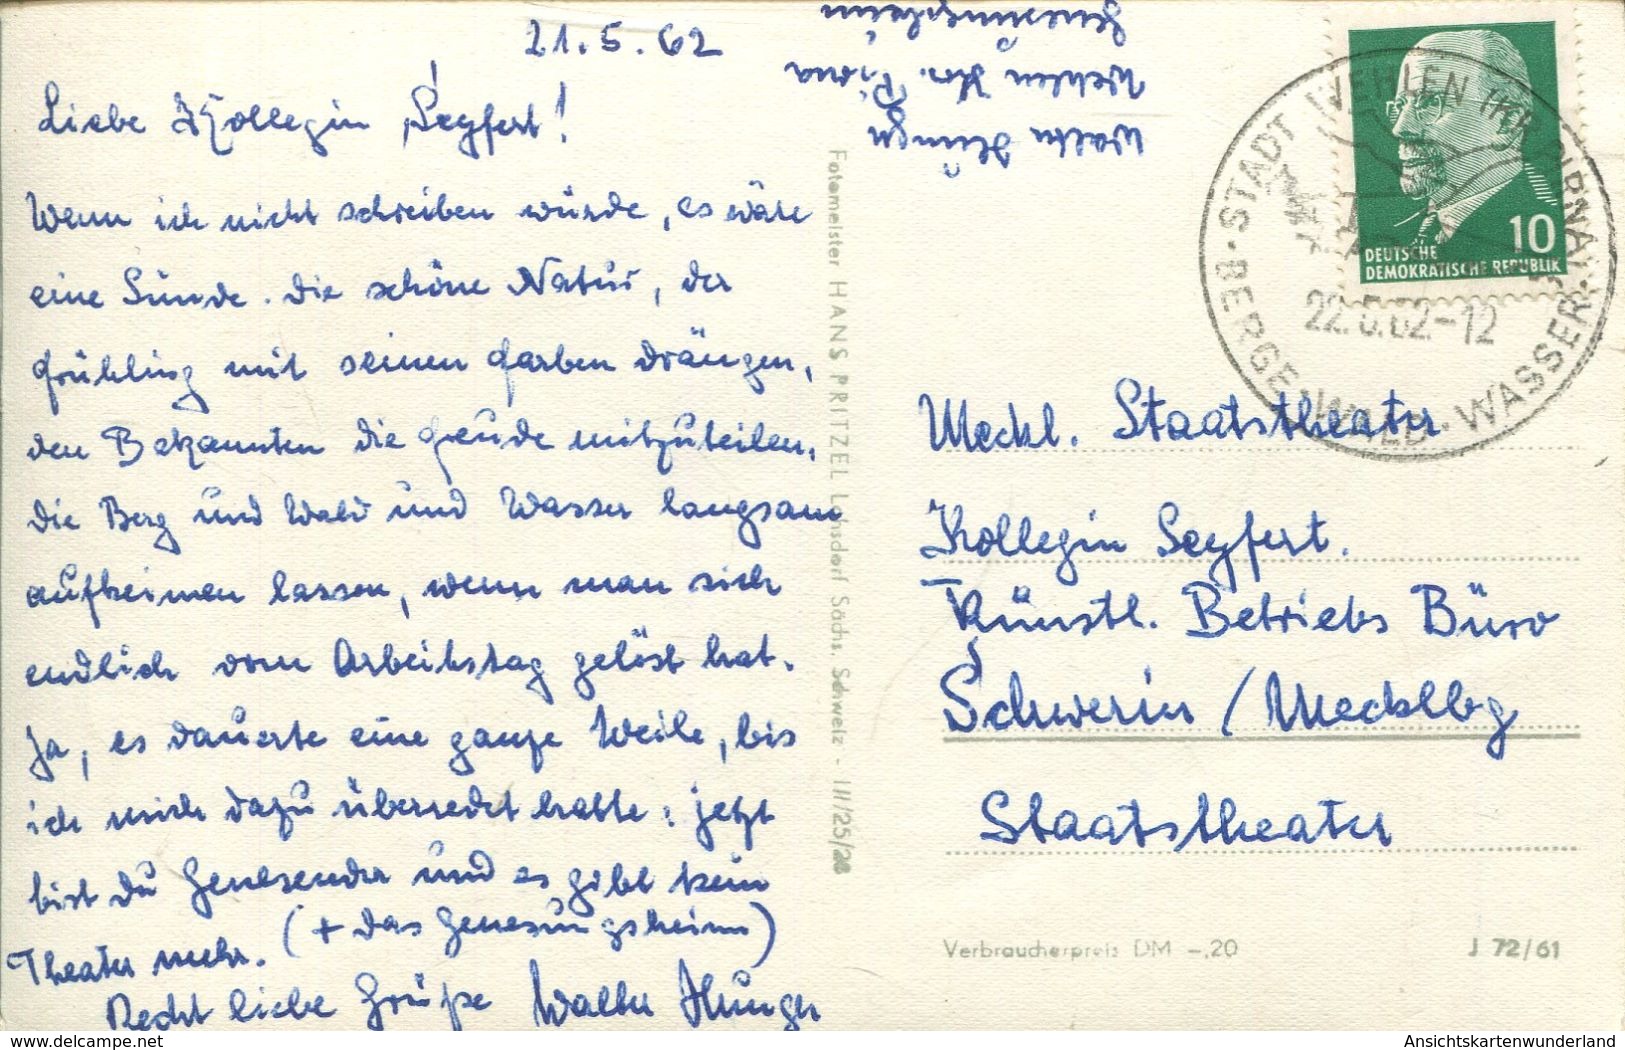 21.5.62
Liebe Kollegin Seyfert!
Wenn ich nicht schreiben würde, es wäre
eine Sünde. Die schöne Natur, der
Frühling mit seinen Farben drängen,
den Bekannten die Freude mitzuteilen.
die Berg und Wald und Wasser langsam
aufkeimen lassen, wenn man sich
endlich vom Arbeitstag gelöst hat.
Ja, es dauerte eine ganze Weile, bis
ich mich dazu überredet hatte: jetzt
bist Du Genesender und es gibt kein
Theater mehr. (+ das Genesungsheim)
Recht liebe Grüße Walter
Walter
Wehlen Kr. Pirna
Genesungsheim
Fotomeister HANS PRITZEL Lohsdorf Sächs. Schweiz - III/25/28
STADT WEHLEN (KR PIRNA)
22.5.62.-12
BERGE · WALD · WASSER
10
DEUTSCHE
DEMOKRATISCHE REPUBLIK
Meckl. Staatstheater
Kollegin Seyfert.
Künstl. Betriebs Büro
Schwerin / Mecklbg
Staatstheater
Verbraucherpreis DM -.20
J 72/61
www.ak-ansichtskarten.de
AnsichtskartenWunderland